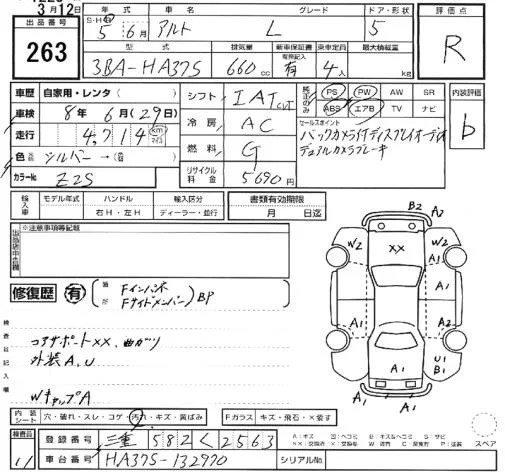 3月12日
出品番号 263
年式 S・H 5 6月
車名 アルト
グレード L
ドア・形状 5
評価点 R
型式 3BA-HA37S
排気量 660cc
新車保証書 有用紙記入 有
乗車定員 4人
最大積載量 kg
車歴 自家用・レンタ( )
車検 8年6月(29日)
走行 4,714 km マイル
色 シルバー→( )
カラーNo Z2S
シフト IAT CVT
冷房 AC
燃料 G
リサイクル料金 5690円
純正のみ PS PW AW SR
ABS エアB TV ナビ
セールスポイント
バックカメラ付ディスプレイオーディオ
デュアルカメラブレーキ
内装評価 b
輸入車 モデル年式 ハンドル 右H・左H 輸入区分 ディーラー・並行
書類有効期限 月 日迄
※注意事項等記載
修復歴 有
Fインパネ
Fサイドメンバー BP
検査員記入欄
コアサポートXX、曲がり
外装A、U
WキャップA
B2 A2
W2 XX W2
A1 A1
A1
A2 A1
A1 U1 B1
A1 A1
内装シート 穴・破れ・スレ・コゲ・汚れ・キズ・黄ばみ
Fガラス キズ・飛石・X要す
検査員 11
登録番号 三重 582 く 2563
車台番号 HA37S-132970
シリアルNo
スペア